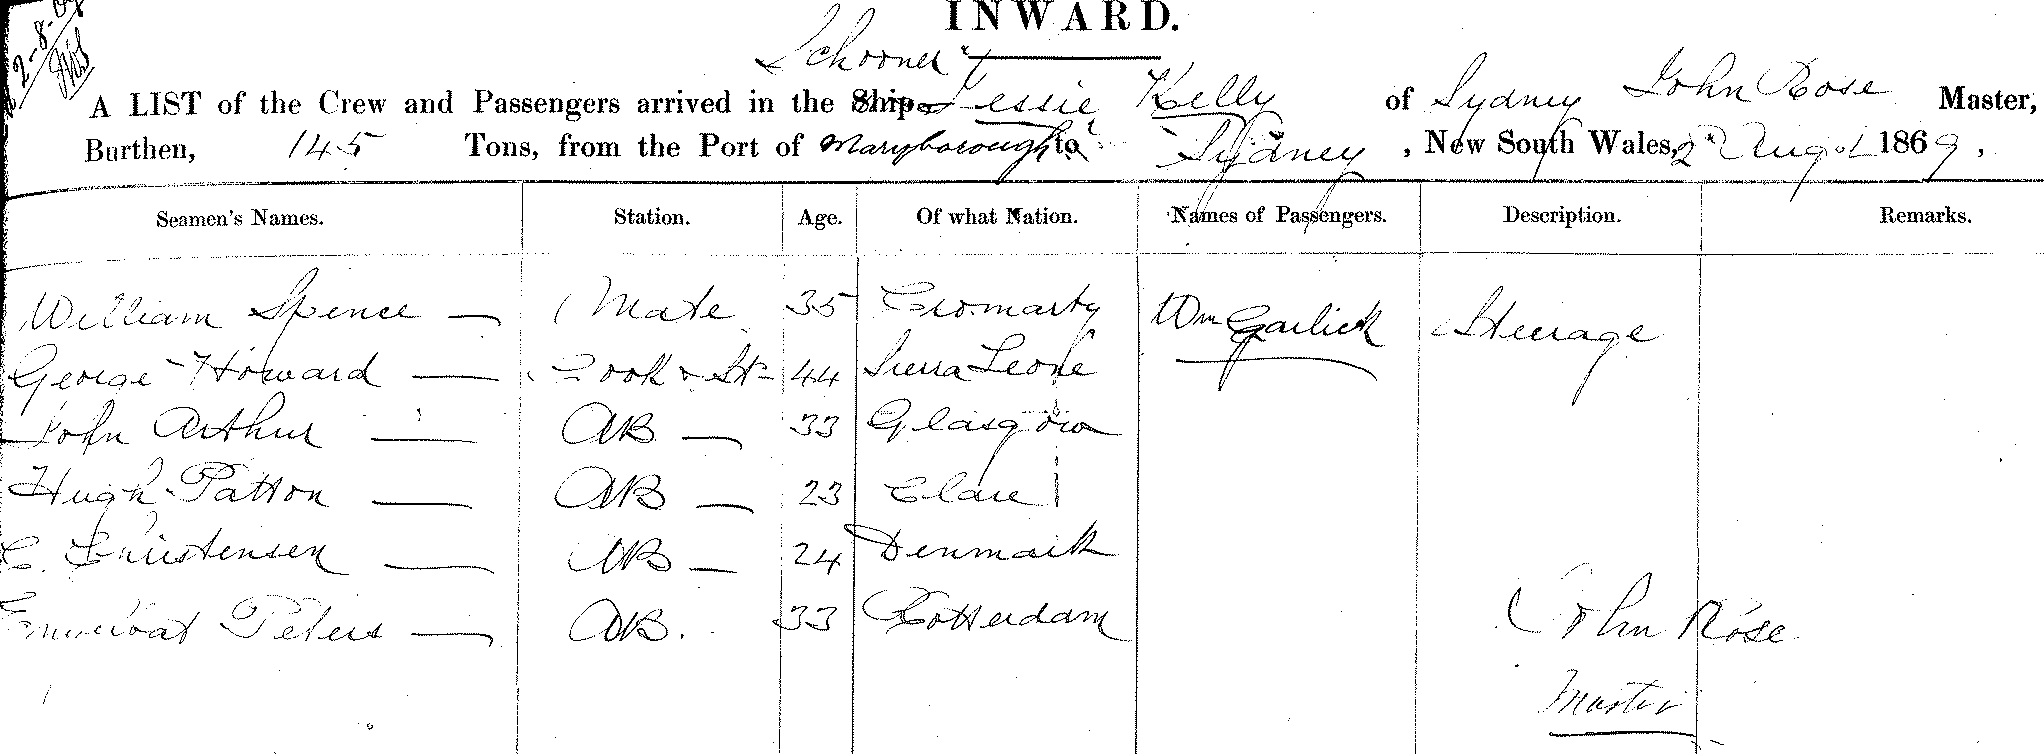 INWARD.
Schooner
A LIST of the Crew and Passengers arrived in the Ship Jessie Kelly of Sydney John Rose Master,
Burthen, 145 Tons, from the Port of Maryborough to Sydney, New South Wales, 2d Augst 1869.
Seamen's Names. Station. Age. Of what Nation. Names of Passengers. Description. Remarks.
William Spence — Mate 35 Cromarty Wm Garlick Steerage
George Howard — Cook & St 44 Sierra Leone
John Arthur — AB — 33 Glasgow
Hugh Patton — AB — 23 Clare
C. Christensen — AB — 24 Denmark
Peters — AB. 33 Rotterdam
John Rose
Master